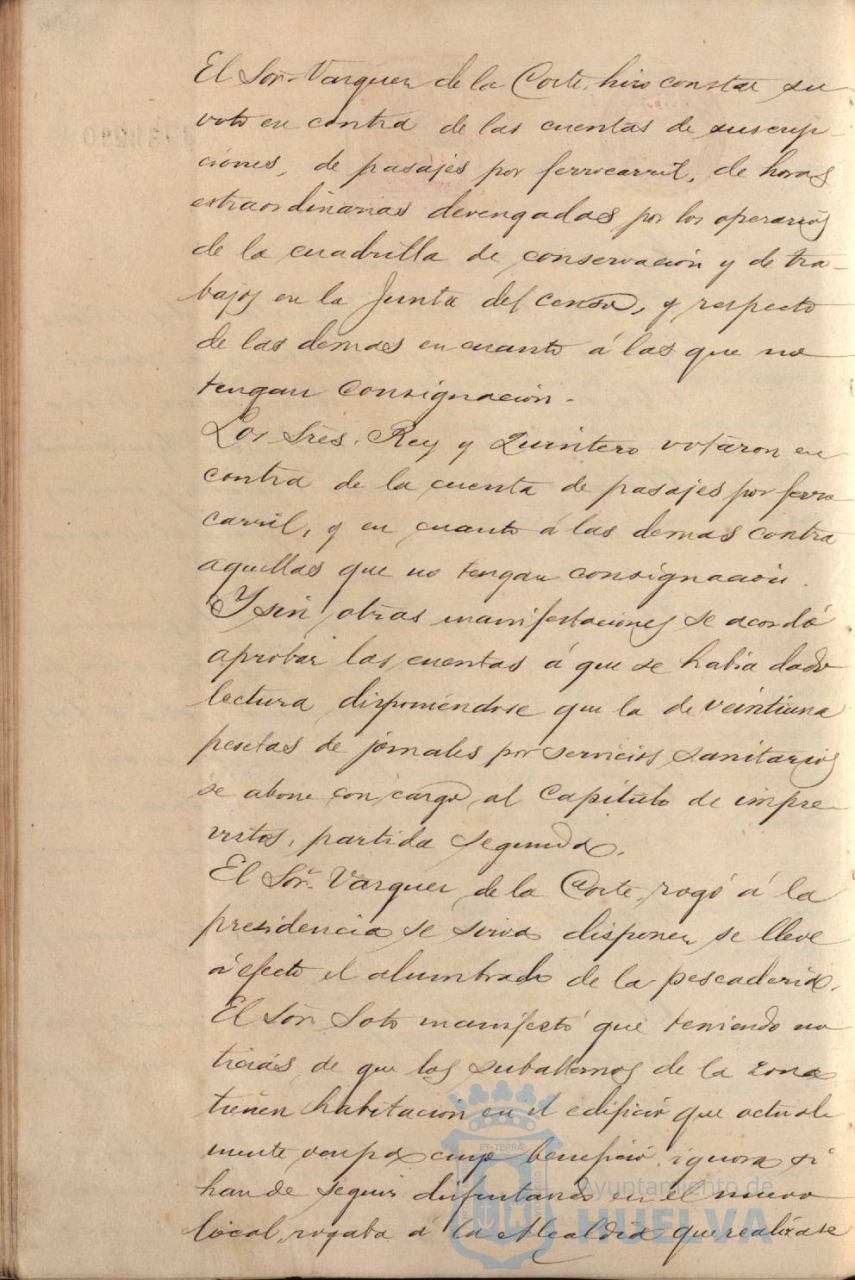 El Sor. Vazquez de la Corte, hizo constar su
voto en contra de las cuentas de suscrip-
ciones, de pasajes por ferrocarril, de horas
estraordinarias devengadas por los operarios
de la cuadrilla de conservación y de tra-
bajos en la Junta del censo, y respecto
de las demas en cuanto á las que no
tengan consignación.
Los Sres. Rey y Quintero votaron en
contra de la cuenta de pasajes por ferro
carril, y en cuanto á las demas contra
aquellas que no tengan consignación.
Y sin otras manifestaciones se acordó
aprobar las cuentas á que se habia dado
lectura, disponiéndose que la de veintiuna
pesetas de jornales por servicios sanitarios
se abone con cargo al Capítulo de impre-
vistos, partida segunda.
El Sor. Vazquez de la Corte, rogó á la
presidencia se sirva disponer se lleve
á efecto el alumbrado de la pescaderia.
El Sor. Soto manifestó que teniendo no
ticias de que los subalternos de la zona
tienen habitacion en el edificio que actual
mente ocupa cuyo beneficio ignora si
han de seguir disfrutando en el nuevo
local, rogaba á la Alcaldia que realizase
ET TERRÆ
Ayuntamiento de
HUELVA